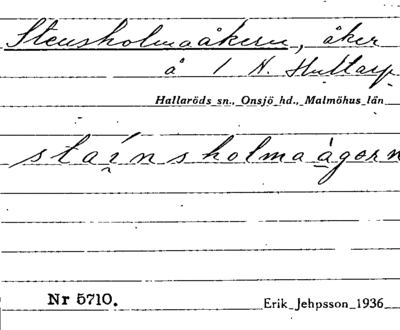 Stensholmaåkern, åker
å 1 N. Hultarp
Hallaröds sn., Onsjö hd., Malmöhus län
staínsholmaàgorn
Nr 5710.
Erik Jehpsson 1936